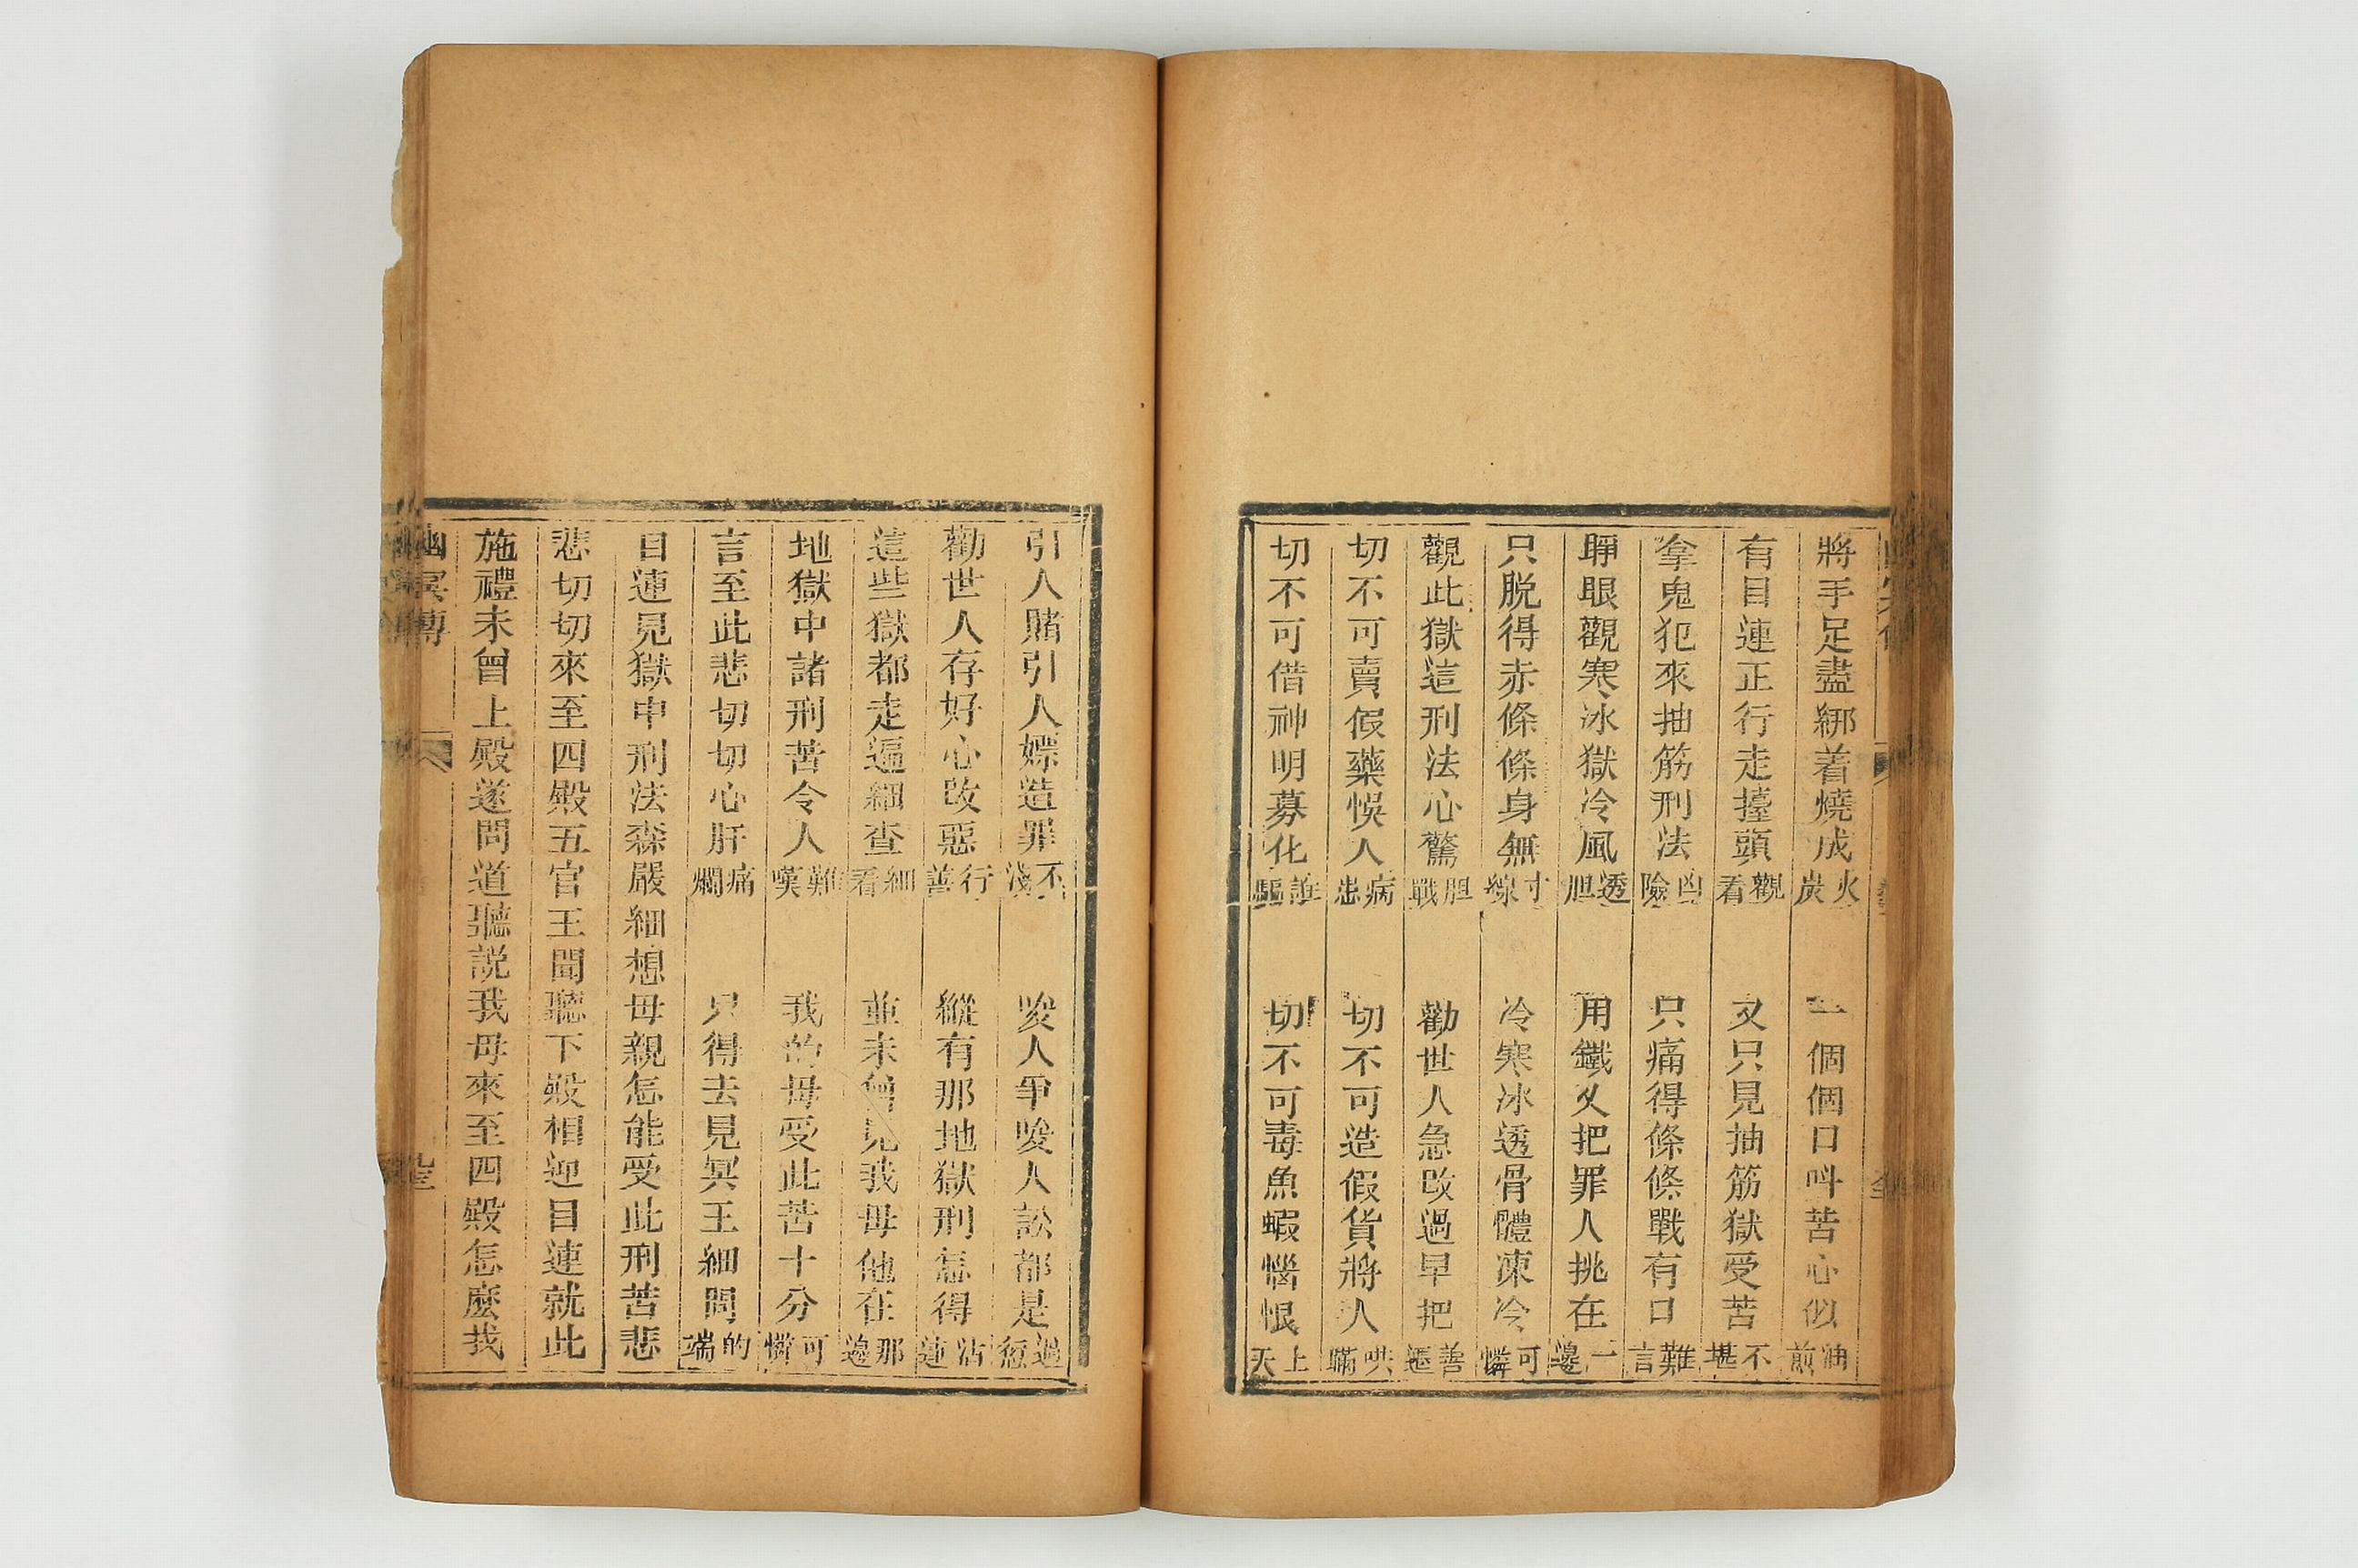 將手足盡綁着燒成火炭　一個個口呌苦心似油煎
有目連正行走擡頭觀看　又只見抽筋獄受苦不堪
拿鬼犯來抽筋刑法凶險　只痛得條條戰有口難言
睜眼觀寒冰獄冷風透胆　用鐵叉把罪人挑在一邊
只脫得赤條條身無寸線　冷寒冰透骨體凍冷可憐
觀此獄這刑法心驚胆戰　勸世人急改過早把善遷
切不可賣假藥悞人患病　切不可造假貨將人哄瞞
切不可借神明募化誆騙　切不可毒魚蝦惱恨上天
引人賭引人嫖造罪不淺　唆人爭唆人訟都是過愆
勸世人存好心改惡行善　縱有那地獄刑怎得沾連
這些獄都走遍細查細看　並未曾見我母他在那邊
地獄中諸刑苦令人難嘆　我的母受此苦十分可憐
言至此悲切切心肝痛爛　只得去見冥王細問的端
目連見獄中刑法森嚴細想母親怎能受此刑苦悲
悲切切來至四殿五官王聞聽下殿相迎目連就此
施禮未曾上殿遂問道聽説我母來至四殿怎麽我
幽冥傳